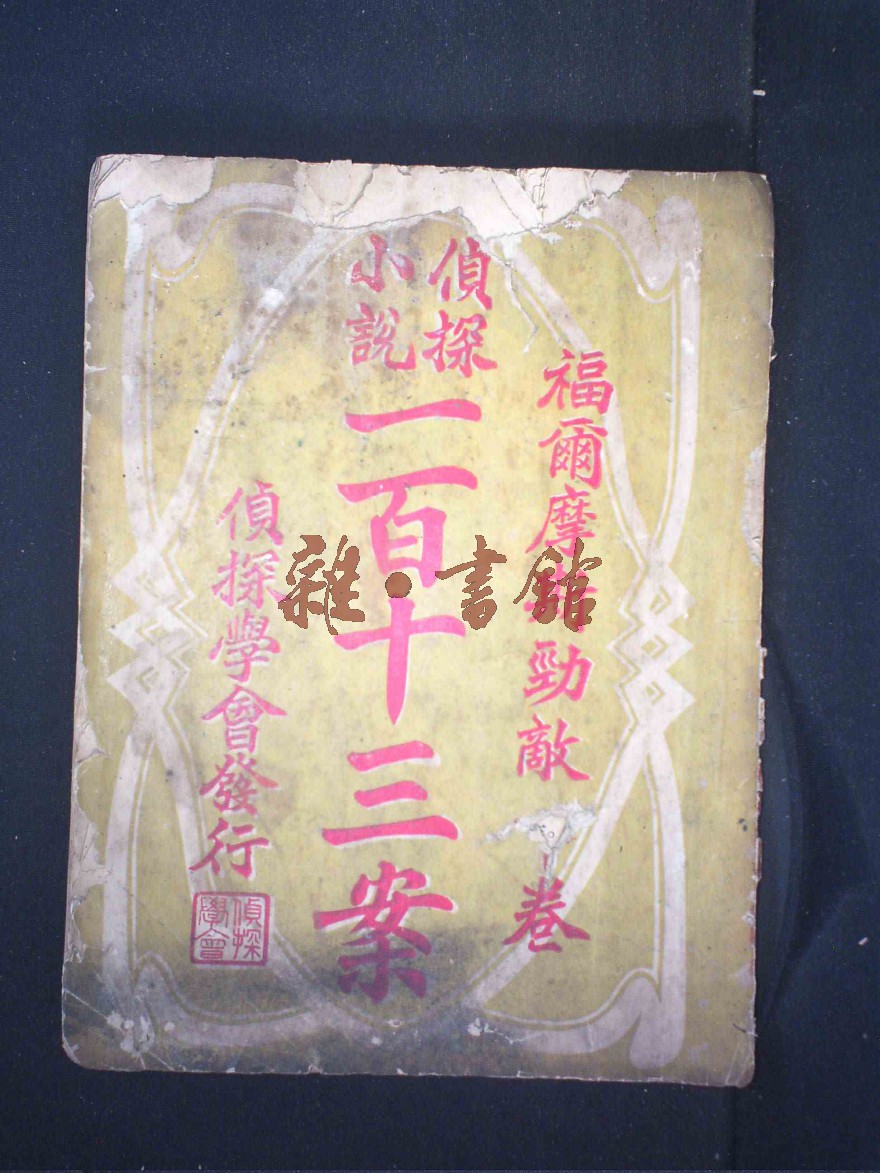 福爾摩斯勁敵
卷
偵探
小說
一百十三案
偵探學會發行
偵探
學會
雜•書館